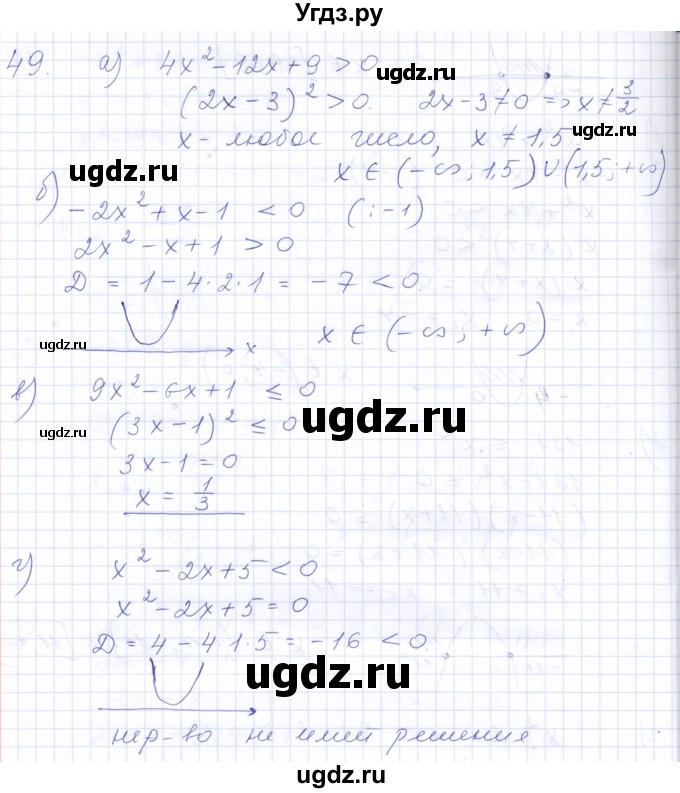 Угдз.ру
49. а) 4x² - 12x + 9 > 0
ugdz.ru
(2x - 3)² > 0. 2x - 3 ≠ 0 => x ≠ 3/2
x - любое число, x ≠ 1,5.
ugdz.ru
x ∈ (-∞; 1,5) ∪ (1,5; +∞)
б) -2x² + x - 1 < 0 (:-1)
2x² - x + 1 > 0
Д = 1 - 4·2·1 = -7 < 0.
ugdz.ru
x
x ∈ (-∞; +∞)
в) 9x² - 6x + 1 ≤ 0
ugdz.ru
ugdz.ru
(3x - 1)² ≤ 0
3x - 1 = 0
x = 1/3
г) x² - 2x + 5 < 0
x² - 2x + 5 = 0
Д = 4 - 4·1·5 = -16 < 0.
ugdz.ru
ugdz.ru
нер-во не имеет решения.
ugdz.ru